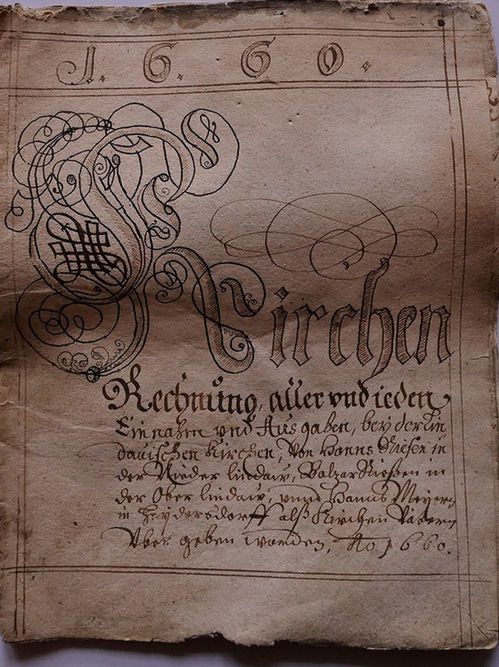 1. 6. 6 0.
Kirchen
Rechnung, aller vnd ieden
Einnahm vnd Ausgaben, bey der lin
dauischen Kirchen, von Hanns Riesen in
der Nieder lindaw, Balzer Rießen in
der Ober lindaw, vnnd Hanns Meyern
in Heydersdorff alß Kirchen Vätern
Vber geben worden, Ao 1660.